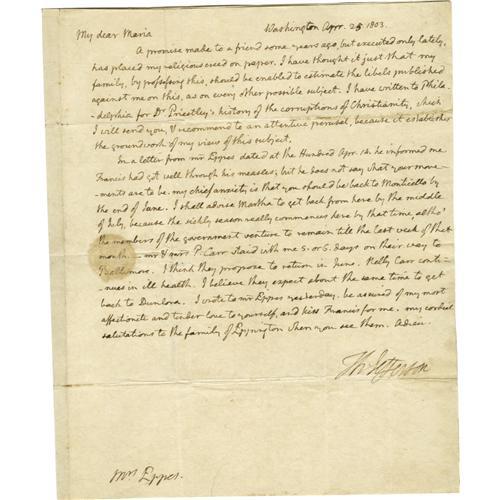 Washington Apr. 25 1803.
My dear Maria
A promise made to a friend some years ago, but executed only lately,
has placed my religious creed on paper. I have thought it just that my
family, by possessing this, should be enabled to estimate the libels published
against me on this, as on every other possible subject. I have written to Phila-
-delphia for Dr. Priestley's history of the corruptions of Christianity, which
I will send you, & recommend to an attentive perusal, because it establishes
the groundwork of my view of this subject.
In a letter from mr Eppes dated at the Hundred Apr. 14. he informed me
Francis had got well through his measles; but he does not say what your move-
-ments are to be. my chief anxiety is that you should be back to Monticello by
the end of June. I shall advise Martha to get back from here by the middle
of July, because the sickly season really commences here by that time, altho'
the members of the government venture to remain till the last week of that
month. - mr & mrs P. Carr staid with me 5. or 6. days on their way to
Baltimore. I think they propose to return in June. Nelly Carr conti-
-nues in ill health. I believe they expect about the same time to get
back to Dunlora. I wrote to mr Eppes yesterday. be assured of my most
affectionate and tender love to yourself, and kiss Francis for me. my cordial
salutations to the family of Eppington when you see them. Adieu.
Th: Jefferson
Mrs Eppes.